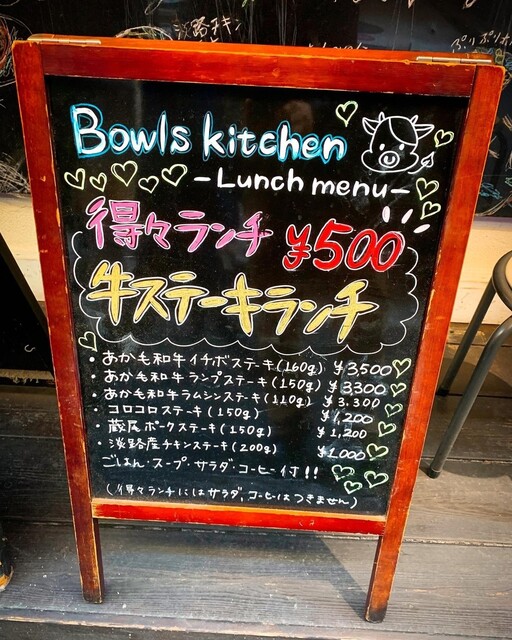 淡路チキン
Bowls kitchen
-Lunch menu-
得々ランチ ¥500
牛ステーキランチ
・あか毛和牛イチボステーキ(160g) ¥3500
・あか毛和牛ランプステーキ(150g) ¥3300
・あか毛和牛ラムシンステーキ(110g) ¥3.300
・コロコロステーキ(150g) ¥1,200
・蔵尾ポークステーキ(150g) ¥1,200
・淡路産チキンステーキ(200g) ¥1000
ごはん・スープ・サラダ・コーヒー付!!
(得々ランチにはサラダ、コーヒーはつきません)